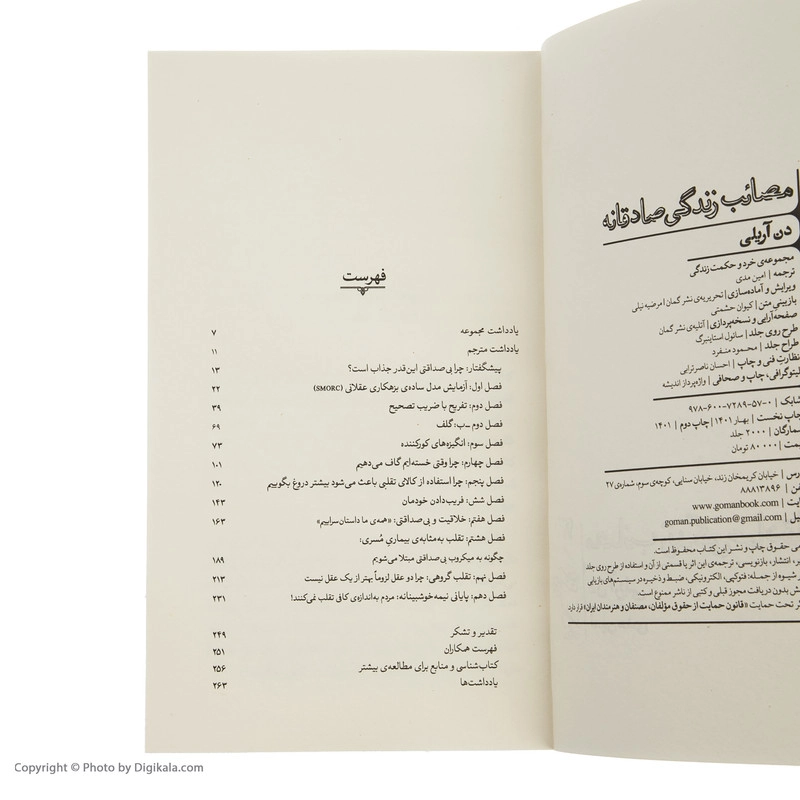 مصائب زندگی صادقانه
دن آریلی
مجموعه‌ی خرد و حکمت زندگی
ترجمه | امین مدی
ویرایش و آماده‌سازی | تحریریه‌ی نشر گمان | مرضیه نیلی
بازبینی متن | کیوان حشمتی
صفحه‌آرایی و نسخه‌پردازی | آتلیه‌ی نشر گمان
طرح روی جلد | سائول استاینبرگ
طراح جلد | محمود منفرد
نظارت فنی و چاپ | احسان ناصرترابی
لیتوگرافی، چاپ و صحافی | واژه‌پرداز اندیشه
شابک | ۹۷۸-۶۰۰-۷۲۸۹-۵۷-۰
چاپ نخست | بهار ۱۴۰۱ | چاپ دوم | ۱۴۰۱
شمارگان | ۲۰۰۰ جلد
قیمت | ۸۰۰۰۰ تومان
خیابان کریمخان زند، خیابان سنایی، کوچه‌ی سوم، شماره‌ی ۲۷
۸۸۸۱۳۸۹۶
www.gomanbook.com
goman.publication@gmail.com
حقوق چاپ و نشر این کتاب محفوظ است.
انتشار، بازنویسی، ترجمه‌ی این اثر یا قسمتی از آن و استفاده از طرح روی جلد
شیوه از جمله: فتوکپی، الکترونیکی، ضبط و ذخیره در سیستم‌های بازیابی
بدون دریافت مجوز قبلی و کتبی از ناشر ممنوع است.
تحت حمایت «قانون حمایت از حقوق مؤلفان، مصنفان و هنرمندان ایران» قرار دارد.
فهرست
یادداشت مجموعه ۷
یادداشت مترجم ۱۱
پیشگفتار: چرا بی‌صداقتی این‌قدر جذاب است؟ ۱۳
فصل اول: آزمایش مدل ساده‌ی بزهکاری عقلانی (SMORC) ۲۲
فصل دوم: تفریح با ضریب تصحیح ۳۹
فصل دوم ـ‌ب: گلف ۶۹
فصل سوم: انگیزه‌های کورکننده ۷۳
فصل چهارم: چرا وقتی خسته‌ایم گاف می‌دهیم ۱۰۱
فصل پنجم: چرا استفاده از کالای تقلبی باعث می‌شود بیشتر دروغ بگوییم ۱۲۰
فصل شش: فریب‌دادن خودمان ۱۴۳
فصل هفتم: خلاقیت و بی‌صداقتی: «همه‌ی ما داستان‌سراییم» ۱۶۳
فصل هشتم: تقلب به‌مثابه‌ی بیماری مُسری:
چگونه به میکروب بی‌صداقتی مبتلا می‌شویم ۱۸۹
فصل نهم: تقلب گروهی: چرا دو عقل لزوماً بهتر از یک عقل نیست ۲۱۳
فصل دهم: پایانی نیمه‌خوشبینانه: مردم به‌اندازه‌ی کافی تقلب نمی‌کنند! ۲۳۱
تقدیر و تشکر ۲۴۹
فهرست همکاران ۲۵۱
کتاب‌شناسی و منابع برای مطالعه‌ی بیشتر ۲۵۶
یادداشت‌ها ۲۶۳
Copyright © Photo by Digikala.com